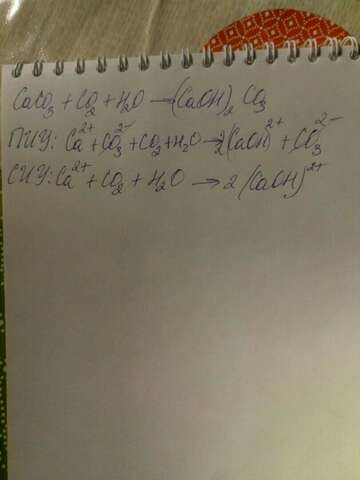 CaCO₃ + CO₂ + H₂O → (CaOH)₂ CO₃
ПИУ: Ca²⁺ + CO₃²⁻ + CO₂ + H₂O → 2(CaOH)²⁺ + CO₃²⁻
СИУ: Ca²⁺ + CO₂ + H₂O → 2 (CaOH)²⁺